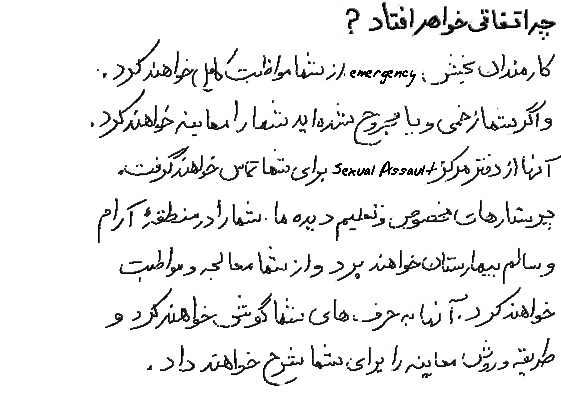 چرا تفاقی خواهر افتاد ?
کارمندان بخش emergency از شما مواظبت کامل خواهند کرد .
و اگر شما زخمی و یا مجروح شده اید شما را معاینه خواهند کرد .
آنها از دفتر مرکز Sexual Assault برای شما تماس خواهند گرفت .
پرستارهای مخصوص و تعلیم دیده ما . شما را در منطقهٔ آرام
و سالم بیمارستان خواهند برد و از شما معالجه و مواظبت
خواهند کرد . آنها به حرف های شما گوش خواهند کرد و
طریقه و روش معاینه را برای شما شرح خواهند داد .